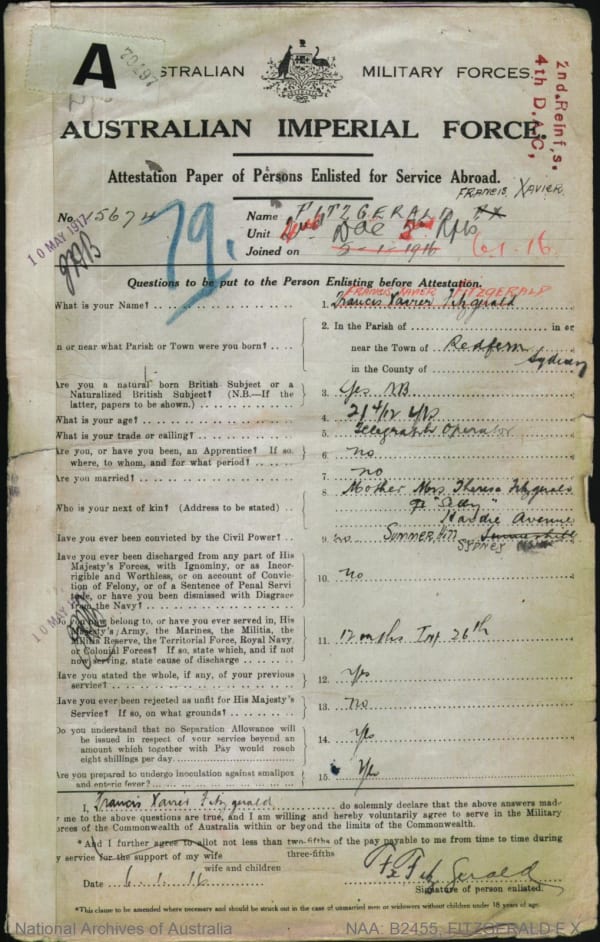 A
70197
STRALIAN MILITARY FORCES.
2nd.Reinf,s.
4th D.A.C,
AUSTRALIAN IMPERIAL FORCE.
Attestation Paper of Persons Enlisted for Service Abroad.
FRANCIS XAVIER.
No. 15674
Name FITZGERALD FX
10 MAY 1917
79.
Unit DAC Rfts
Joined on 5-1-1916 6.1.16
Questions to be put to the Person Enlisting before Attestation.
FRANCIS XAVIER FITZGERALD
What is your Name? 1. Francis Xavier Fitzgerald
2. In the Parish of in or
n or near what Parish or Town were you born? near the Town of Redfern
in the County of Sydney
Are you a natural born British Subject or a 3. Yes NB
Naturalized British Subject? (N.B.—If the
latter, papers to be shown.)
What is your age? 4. 21 4/12 yrs
What is your trade or calling? 5. Telegraph Operator
Are you, or have you been, an Apprentice? If so, 6. no
where, to whom, and for what period?
Are you married? 7. no
8. Mother Mrs. Theresa Fitzgerald
Who is your next of kin? (Address to be stated)
Hardie Avenue
Have you ever been convicted by the Civil Power? 9. no SUMMER HILL Summerhill
SYDNEY
Have you ever been discharged from any part of His
Majesty's Forces, with Ignominy, or as Incor-
rigible and Worthless, or on account of Convic- 10. no
tion of Felony, or of a Sentence of Penal Servi
tude, or have you been dismissed with Disgrace
from the Navy?
10 MAY
Do you now belong to, or have you ever served in, His
Majesty's Army, the Marines, the Militia, the
Militia Reserve, the Territorial Force, Royal Navy 11. 12 mths Inf. 26th
or Colonial Forces? If so, state which, and if not
now serving, state cause of discharge
Have you stated the whole, if any, of your previous 12. Yes
service?
Have you ever been rejected as unfit for His Majesty's 13. No
Service? If so, on what grounds?
Do you understand that no Separation Allowance will 14. Yes
be issued in respect of your service beyond an
amount which together with Pay would reach
eight shillings per day
Are you prepared to undergo inoculation against smallpox 15. Yes
and enteric fever?
I, Francis Xavier Fitzgerald do solemnly declare that the above answers made
y me to the above questions are true, and I am willing and hereby voluntarily agree to serve in the Military
orces of the Commonwealth of Australia within or beyond the limits of the Commonwealth.
*And I further agree to allot not less than two-fifths of the pay payable to me from time to time during
three-fifths
y service for the support of my wife
wife and children
Date 6.1.16 Fx Fitz Gerald
Signature of person enlisted.
*This clause to be amended where necessary and should be struck out in the case of unmarried men or widowers without children under 18 years of age.
National Archives of Australia NAA: B2455, FITZGERALD F X